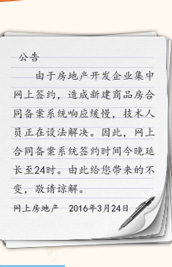 公告
由于房地产开发企业集中
网上签约，造成新建商品房合
同备案系统响应缓慢，技术人
员正在设法解决。因此，网上
合同备案系统签约时间今晚延
长至24时。由此给您带来的不
变，敬请谅解。
网上房地产 2016年3月24日